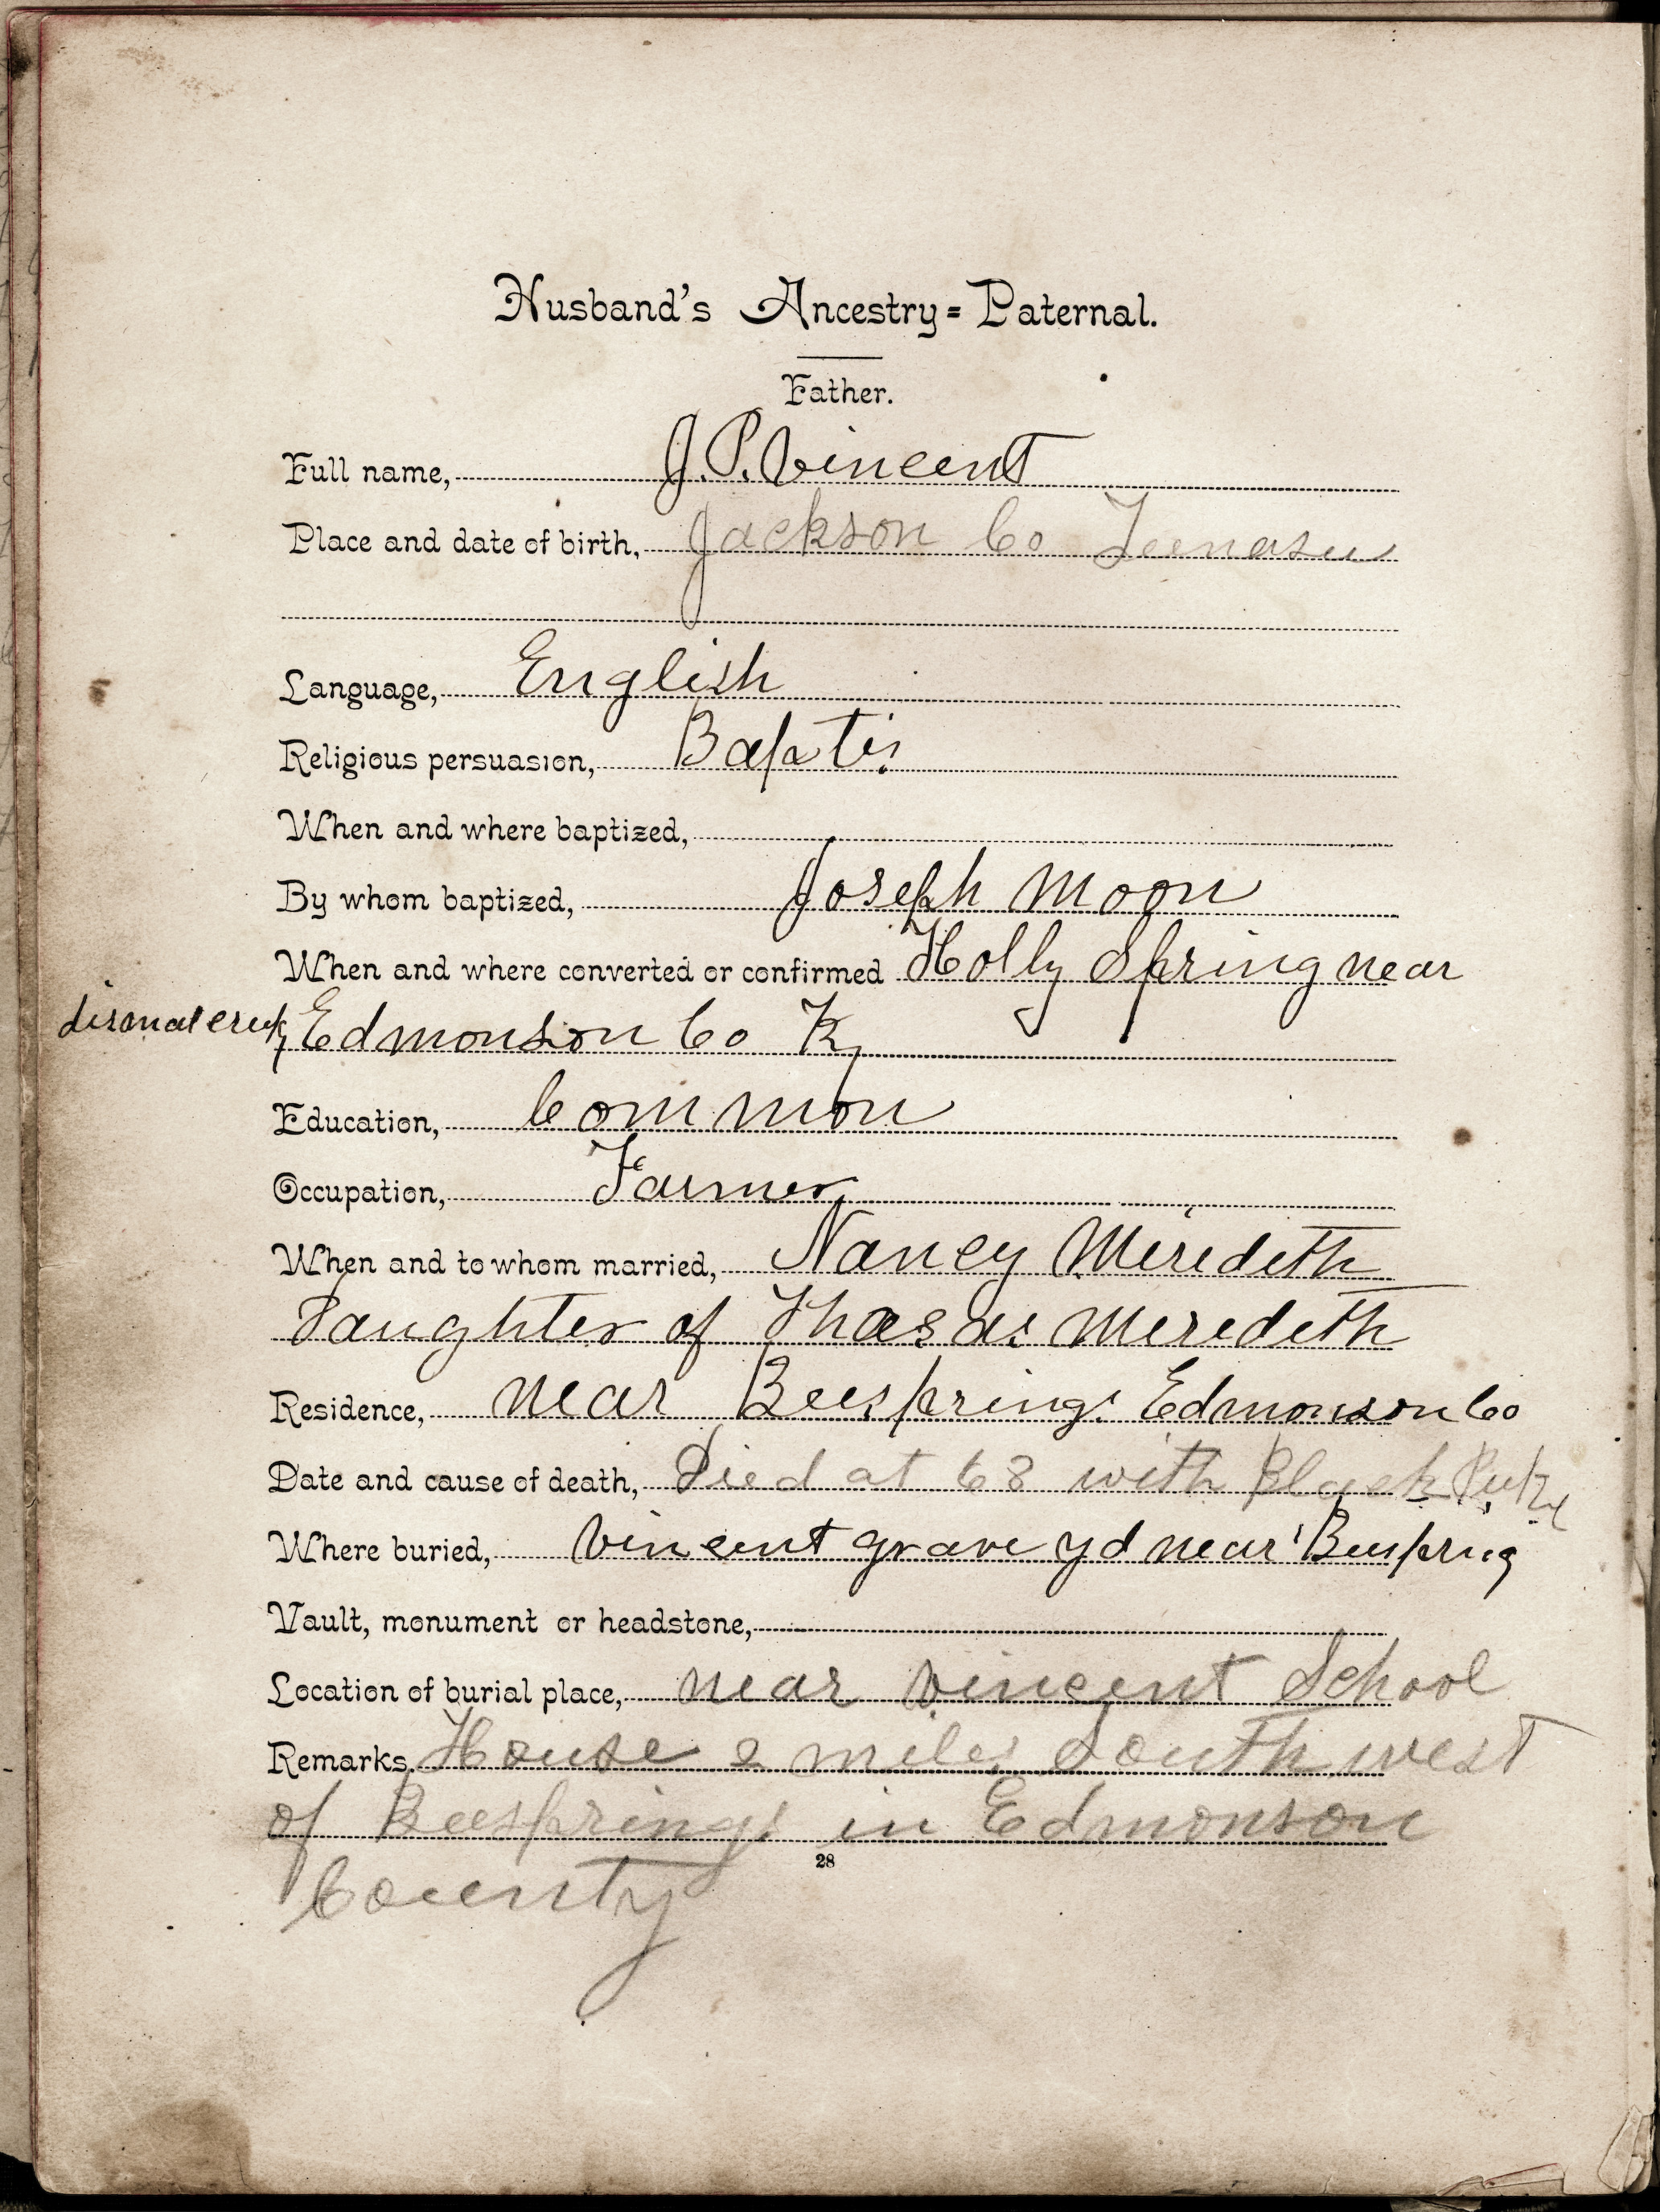 Husband's Ancestry = Paternal.
Father.
Full name, J. P. Vincent
Place and date of birth, Jackson Co
Language, English
Religious persuasion, Baptis
When and where baptized,
By whom baptized, Joseph Moon
When and where converted or confirmed Holly Spring near
dismal creek, Edmonson Co Ky
Education, Common
Occupation, Farmer
When and to whom married, Nancy Meredith
Daughter of Meredith
Residence, near Beesprings Edmonson Co
Date and cause of death, Died at 68 with Black
Where buried, Vincent grave yd near Beespring
Vault, monument or headstone,
Location of burial place, near Vincent School
Remarks. House 2 miles South west
of Beesprings in Edmonson
28
County